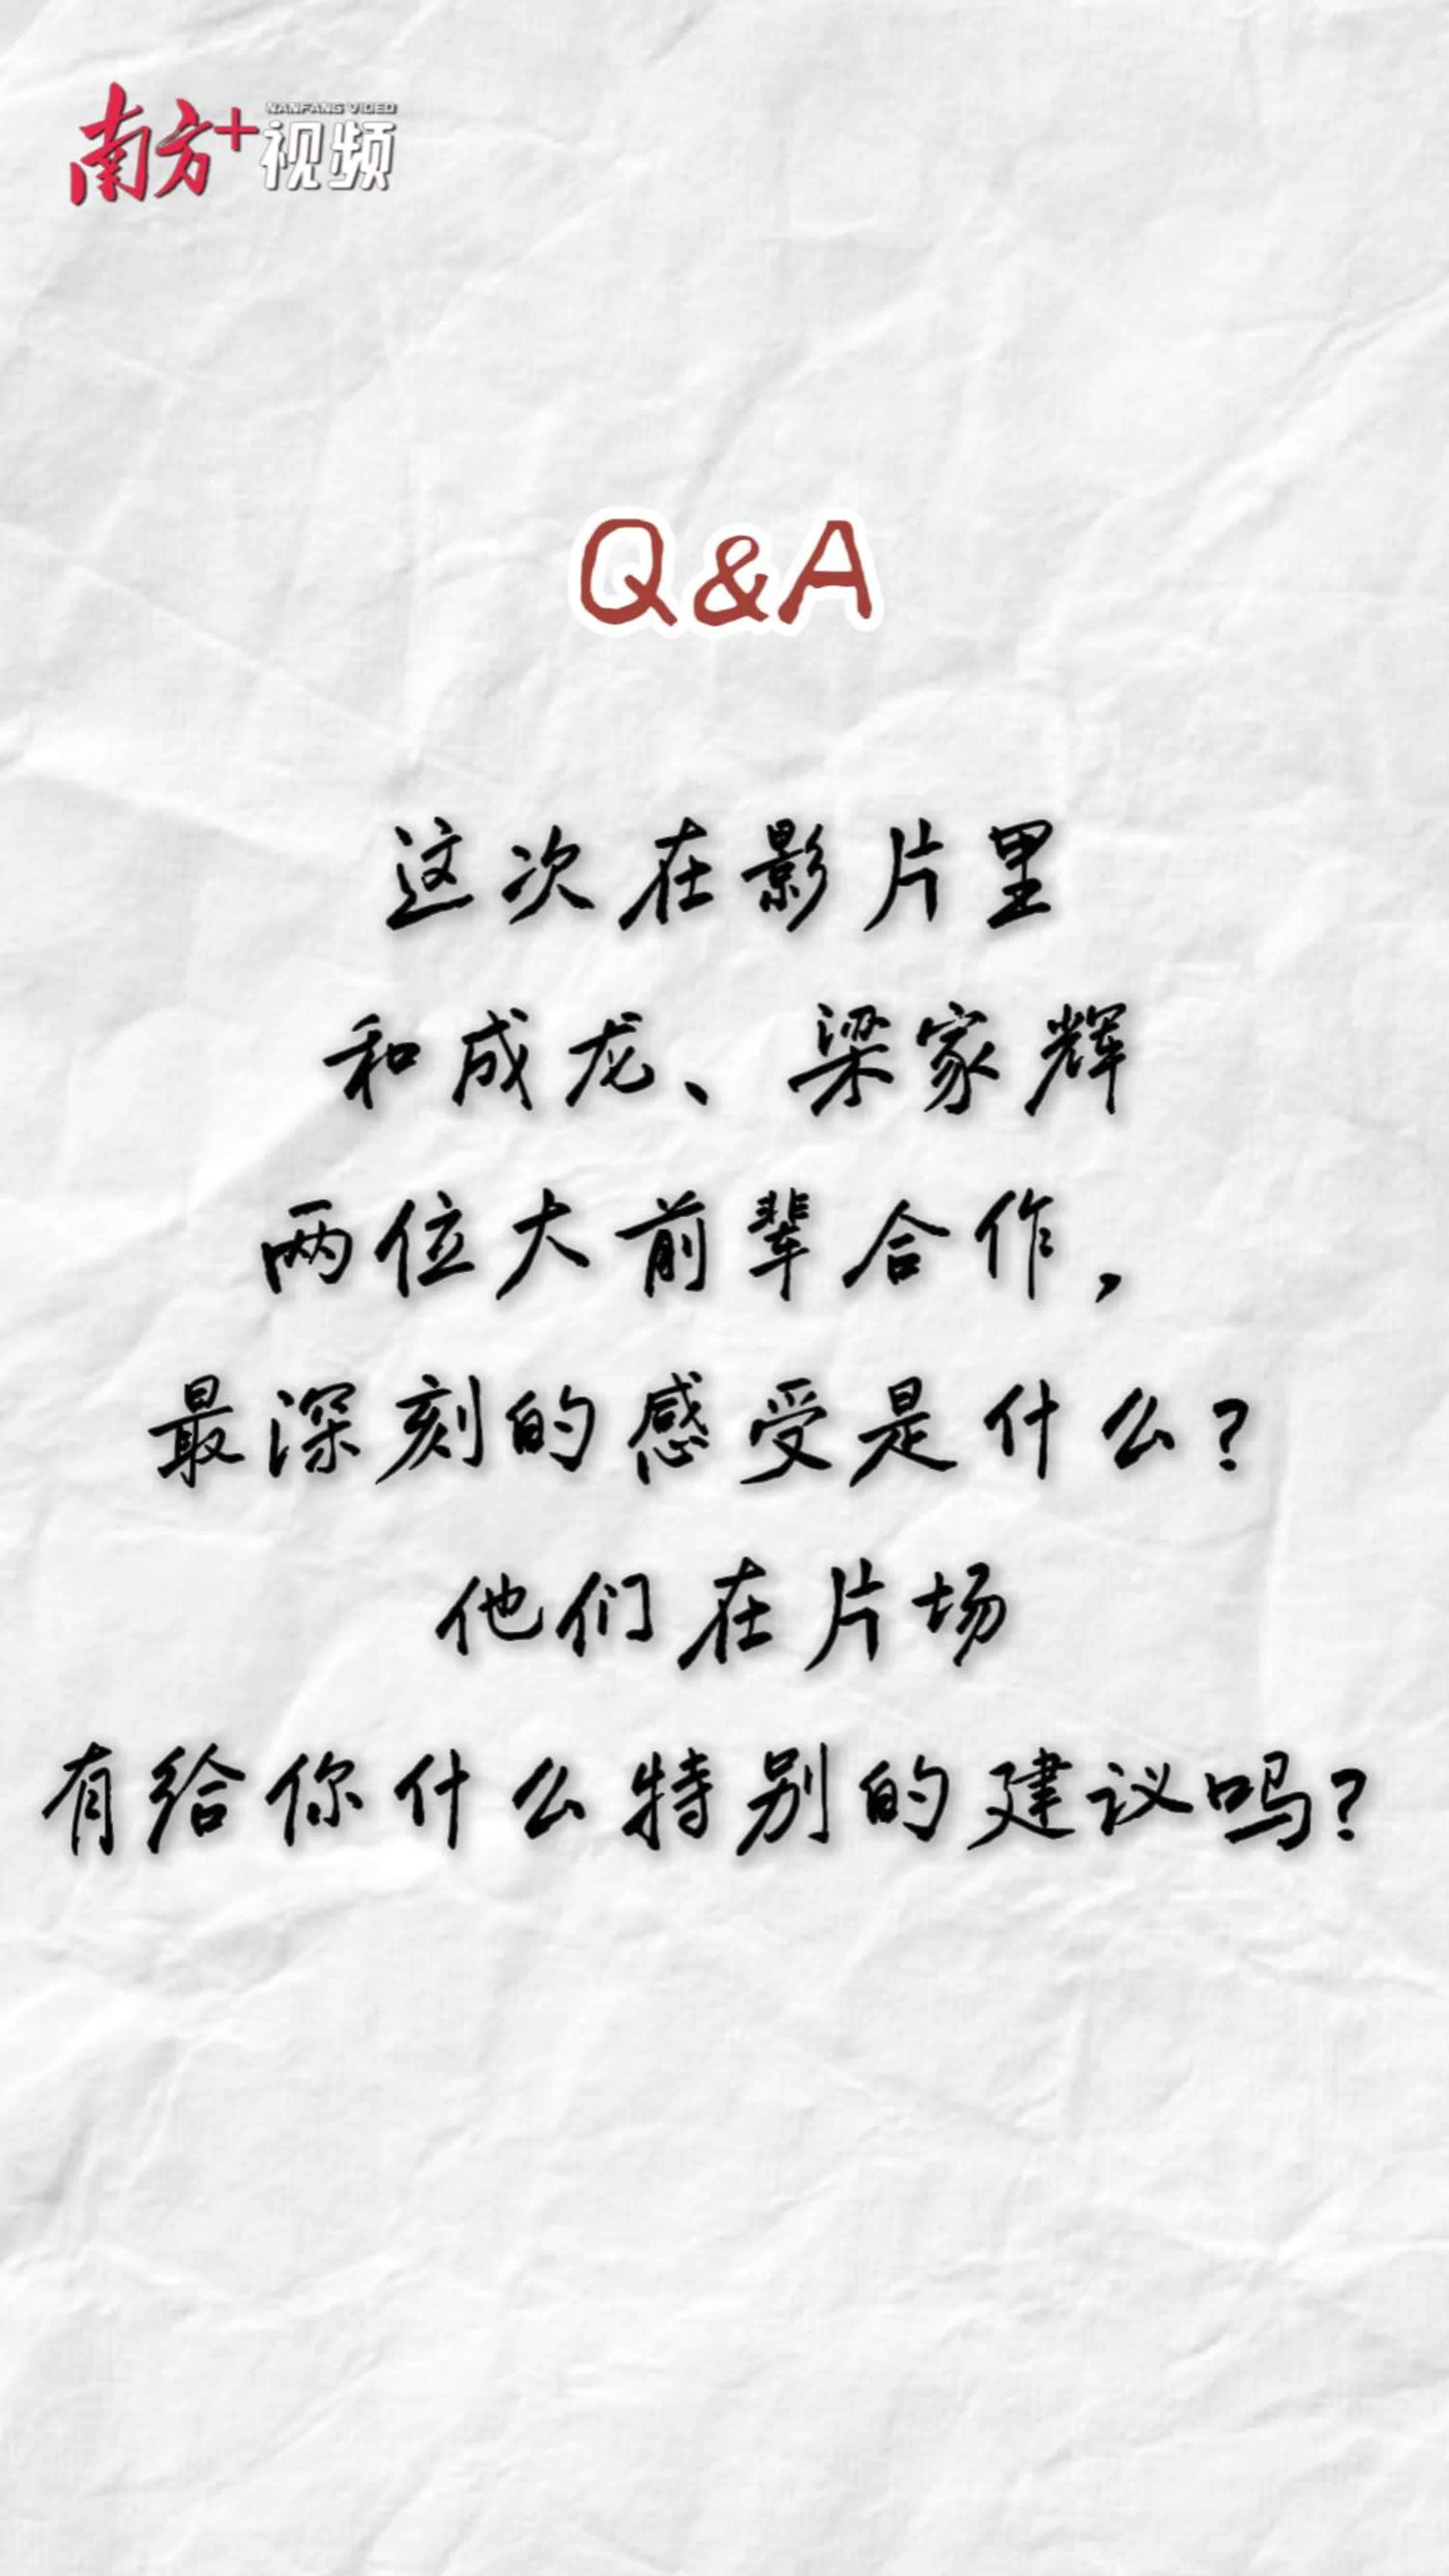 南方+视频
NANFANG VIDEO
Q&A
这次在影片里
和成龙、梁家辉
两位大前辈合作，
最深刻的感受是什么？
他们在片场
有给你什么特别的建议吗？